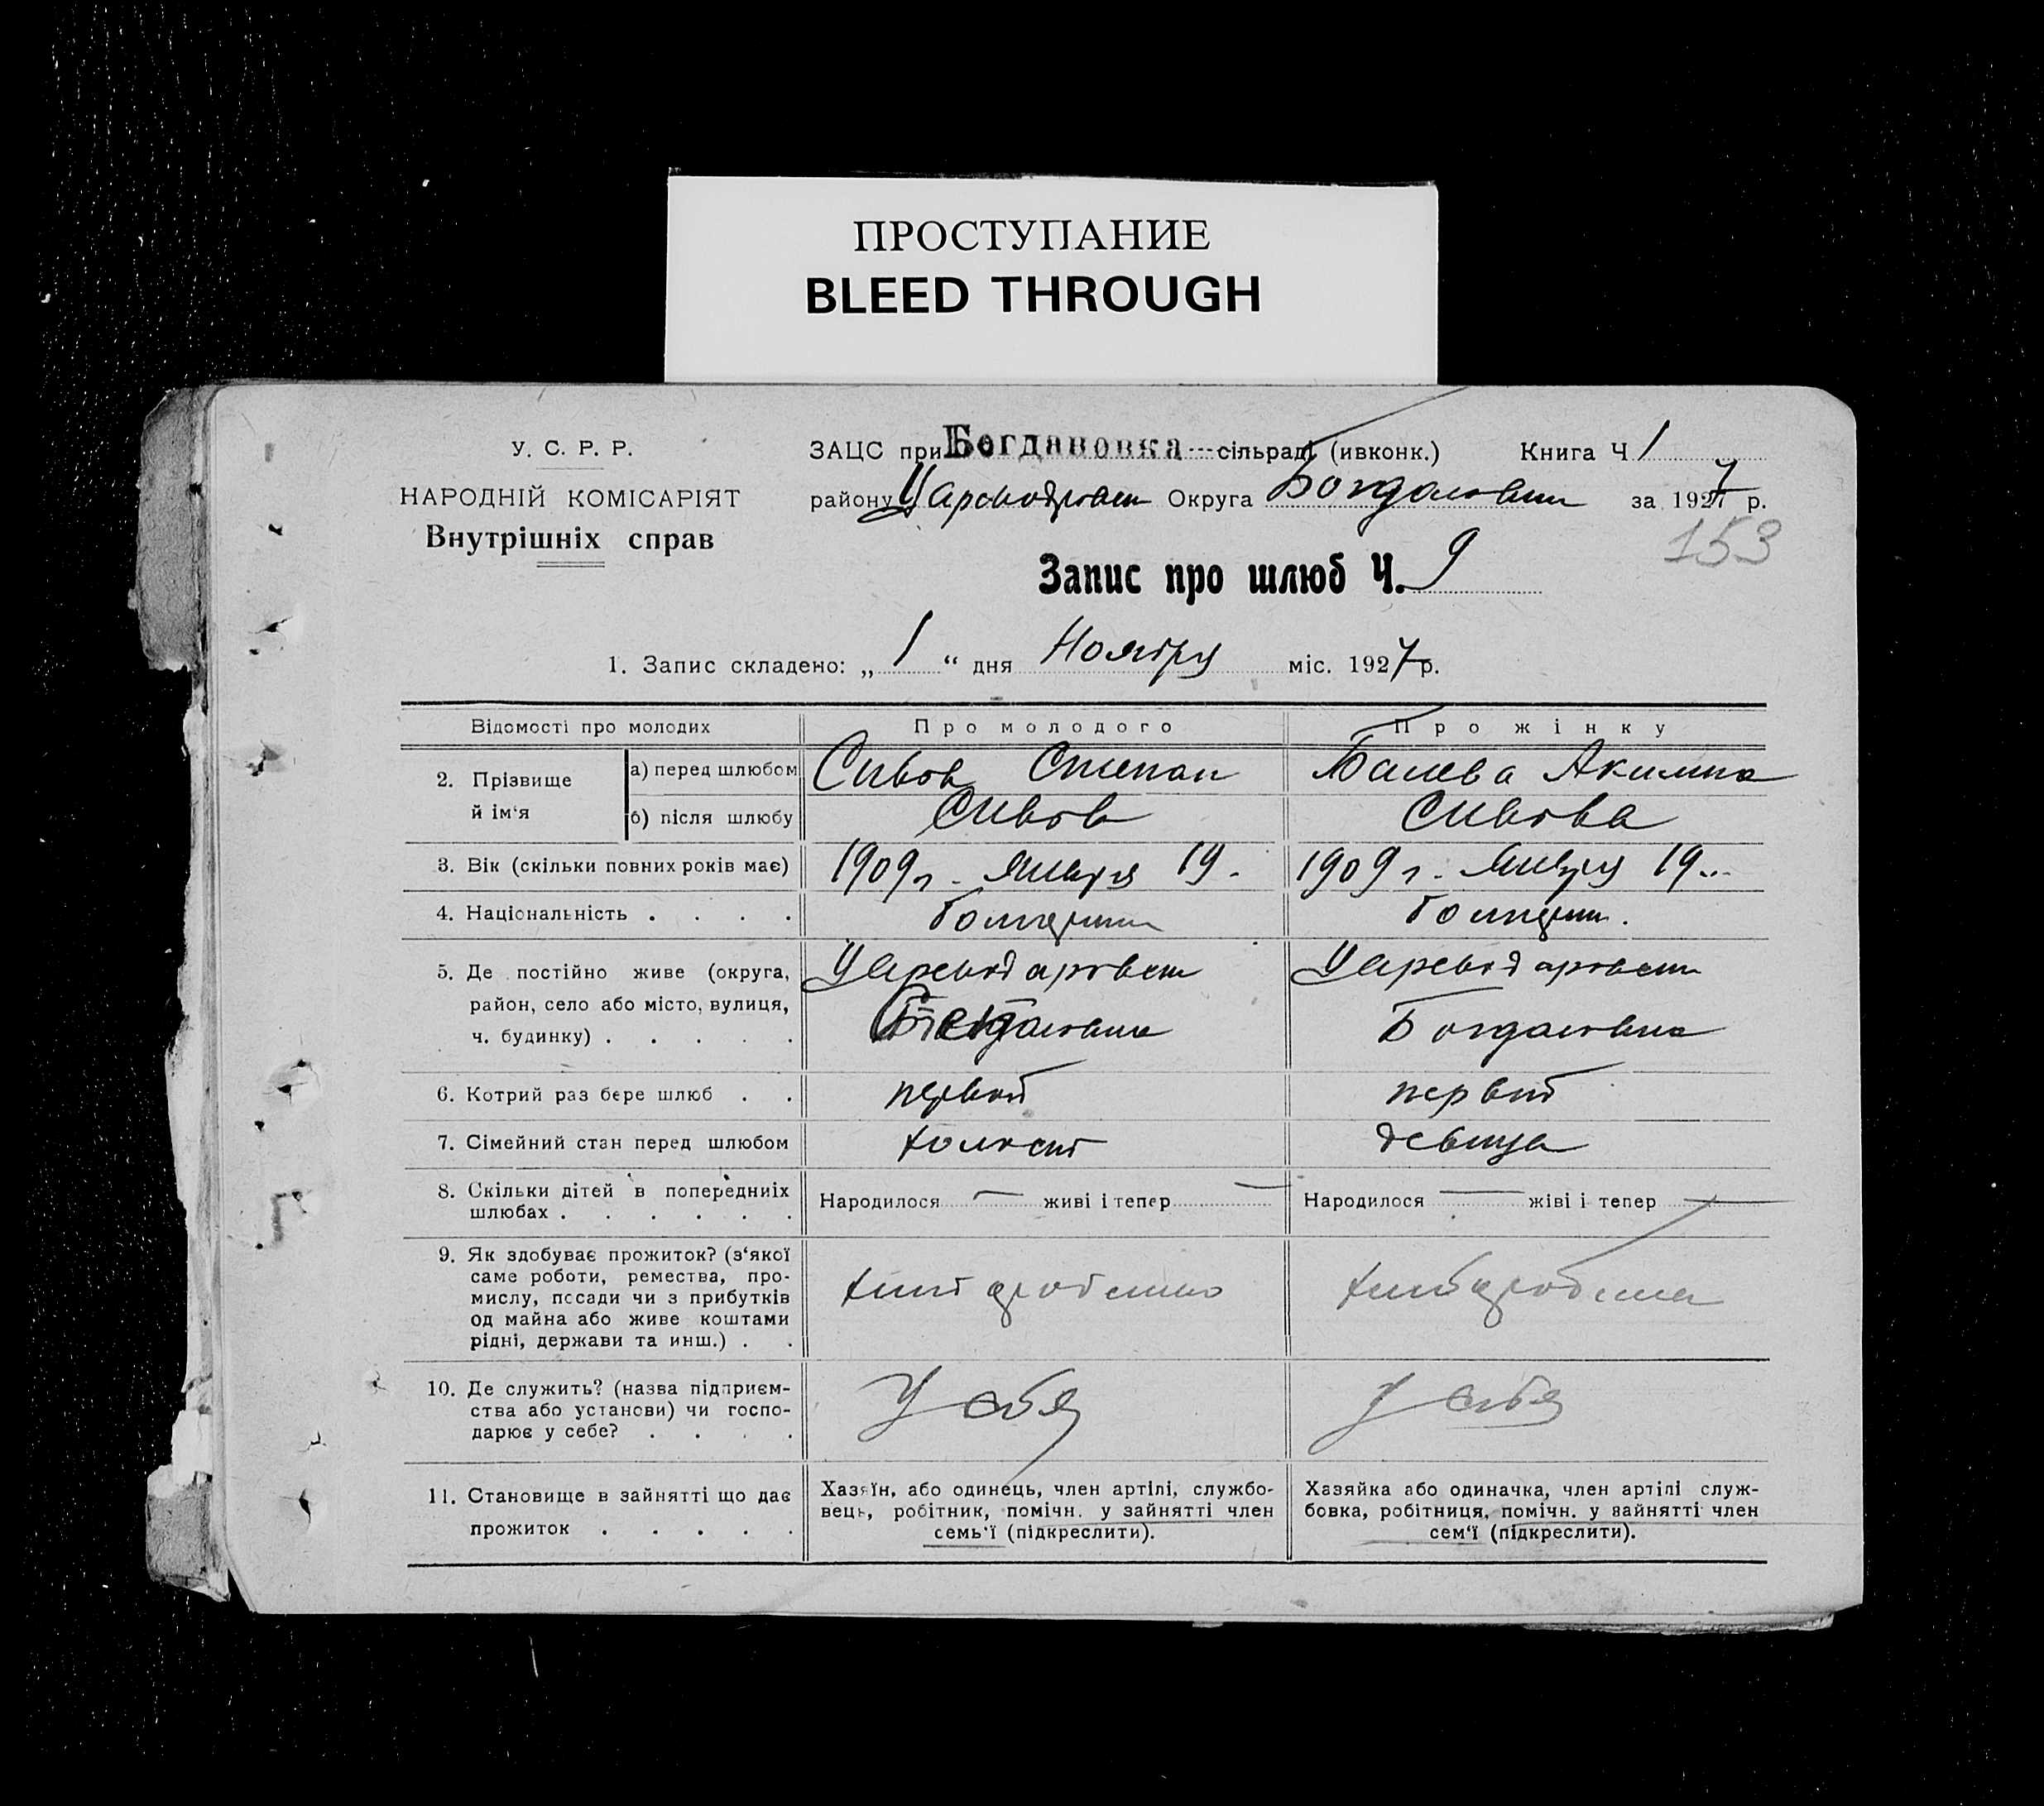 ПРОСТУПАНИЕ
BLEED THROUGH
У. С. Р. Р.
НАРОДНІЙ КОМІСАРІЯТ
Внутрішніх справ
ЗАЦС при Богдановка сільраді (ивконк.) Книга Ч 1
району Округа Богдановки за 1927 р.
153
Запис про шлюб Ч. 9
1. Запис складено: „ 1 “ дня Ноября міс. 1927 р.
Відомості про молодих Про молодого Про жінку
2. Прізвище й ім‘я
а) перед шлюбом Сивов Степан Балева Акилина
б) після шлюбу Сивов Сивова
3. Вік (скільки повних років має) 1909 г. Января 19. 1909 г. Января 19...
4. Національність . . . .
5. Де постійно живе (округа,
район, село або місто, вулиця,
ч. будинку) . . . . . Богдановка
6. Котрий раз бере шлюб . . первый первый
7. Сімейний стан перед шлюбом холост девица
8. Скільки дітей в попередниіх
шлюбах . . . . . .
Народилося — живі і тепер — Народилося — жіві і тепер —
9. Як здобуває прожиток? (з‘якої
саме роботи, ремества, про-
мислу, посади чи з прибутків
од майна або живе коштами
рідні, держави та инш.) . .
10. Де служить? (назва підприєм-
ства або установи) чи госпо-
дарює у себе? . . . .
У себя У себя
11. Становище в зайнятті що дає
прожиток . . . . .
Хазяїн, або одинець, член артілі, службо-
вець, робітник, помічн. у зайнятті член
семь‘ї (підкреслити).
Хазяйка або одиначка, член артілі служ-
бовка, робітниця, помічн. у зайнятті член
сем‘ї (підкреслити).